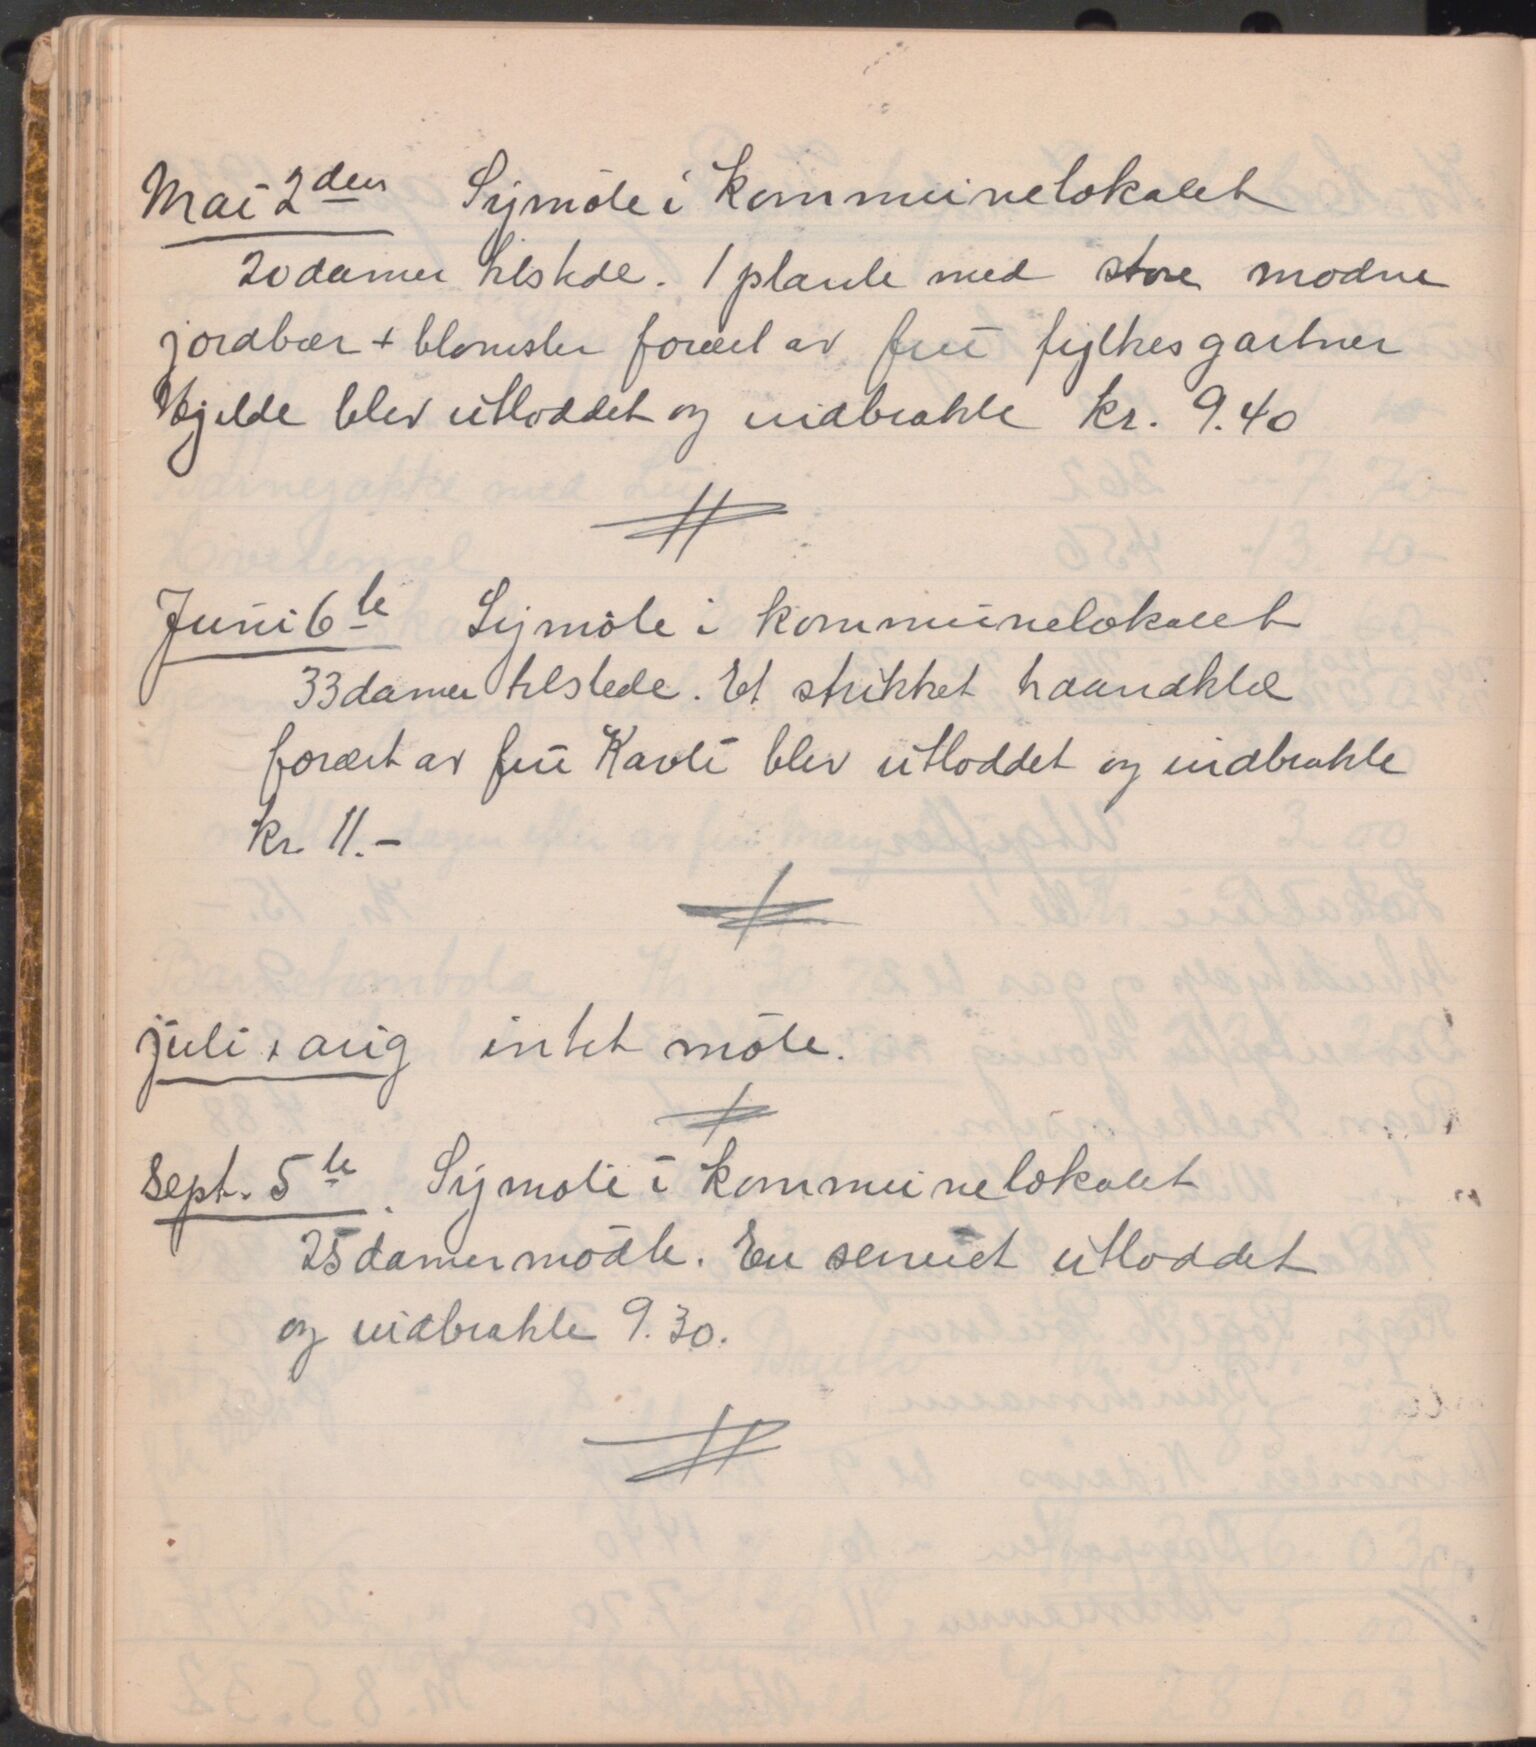 Mai 2den Symöte i kommunelokalet
20 damer tilstede. 1 plante med store modne
jordbær + blomster foræret av fru fylkesgartner
Kjelde blev utloddet og indbrakte kr. 9.40
Juni 6te Symöte i kommunelokalet
33 damer tilstede. Et strikket haandklæ
foræret av fru Kavli blev utloddet og indbrakte
kr. 11.-
juli + aug intet möte.
Sept. 5te. Symöte i kommunelokalet
25 damer mödte. En serviet utloddet
og indbrakte 9.30.